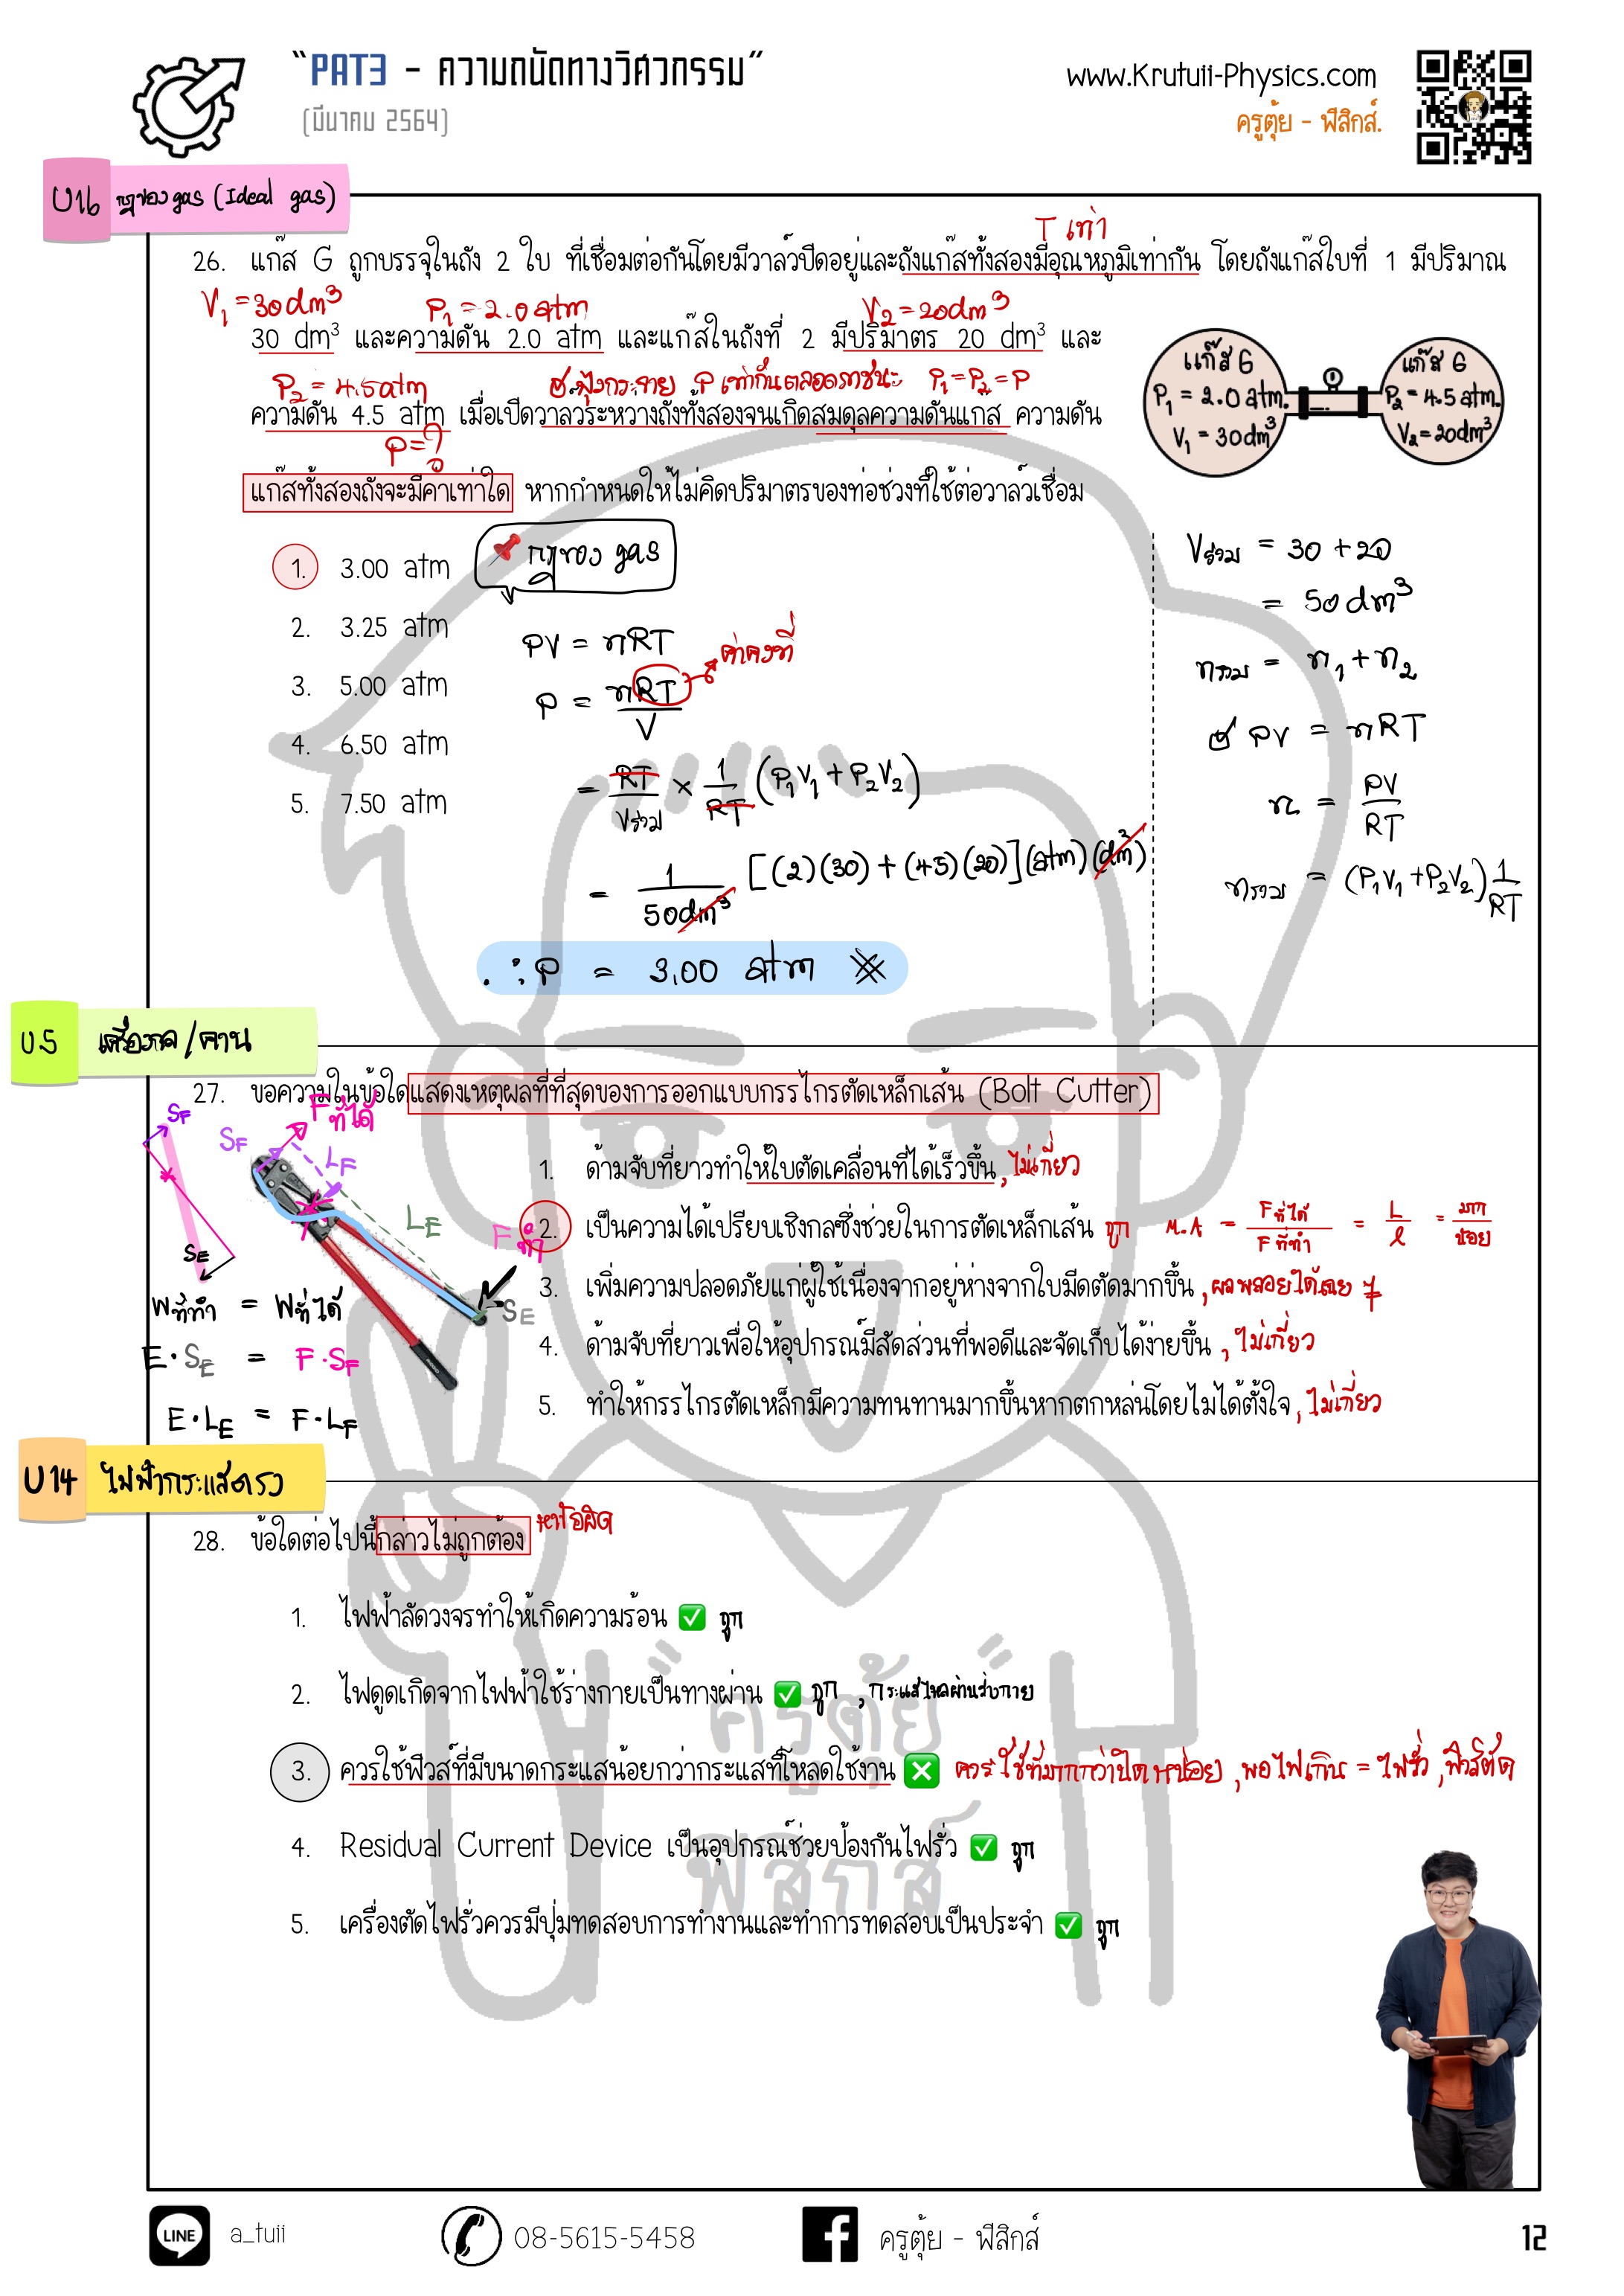 “PAT3 - ความถนัดทางวิศวกรรม”
(มีนาคม 2564)
www.Krutuii-Physics.com
ครูตุ้ย - ฟิสิกส์.
U16 กฎของ gas (Ideal gas)
T เท่า
26. แก๊ส G ถูกบรรจุในถัง 2 ใบ ที่เชื่อมต่อกันโดยมีวาล์วปิดอยู่และถังแก๊สทั้งสองมีอุณหภูมิเท่ากัน โดยถังแก๊สใบที่ 1 มีปริมาณ
V₁ = 30 dm³ P₁ = 2.0 atm V₂ = 20 dm³
30 dm³ และความดัน 2.0 atm และแก๊สในถังที่ 2 มีปริมาตร 20 dm³ และ
P₂ = 4.5 atm ฟุ้งกระจาย P เท่ากันตลอดภาชนะ P₁ = P₂ = P
ความดัน 4.5 atm เมื่อเปิดวาล์วระหวางถังทั้งสองจนเกิดสมดุลความดันแก๊ส ความดัน
P = ?
แก๊สทั้งสองถังจะมีค่าเท่าใด หากกำหนดให้ไม่คิดปริมาตรของท่อช่วงที่ใช้ต่อวาล์วเชื่อม
แก๊ส G
P₁ = 2.0 atm.
V₁ = 30 dm³
แก๊ส G
P₂ = 4.5 atm.
V₂ = 20 dm³
1. 3.00 atm
2. 3.25 atm
3. 5.00 atm
4. 6.50 atm
5. 7.50 atm
กฎของ gas
PV = nRT
P = nRT/V ค่าคงที่
= RT/Vรวม × 1/RT (P₁V₁ + P₂V₂)
= 1/50dm³ [(2)(30) + (4.5)(20)](atm)(dm³)
∴ P = 3.00 atm
Vรวม = 30 + 20
= 50 dm³
nรวม = n₁ + n₂
PV = nRT
n = PV/RT
nรวม = (P₁V₁ + P₂V₂) 1/RT
U5 เครื่องกล/คาน
27. ขอความในข้อใดแสดงเหตุผลที่ที่สุดของการออกแบบกรรไกรตัดเหล็กเส้น (Bolt Cutter)
1. ด้ามจับที่ยาวทำให้ใบตัดเคลื่อนที่ได้เร็วขึ้น , ไม่เกี่ยว
2. เป็นความได้เปรียบเชิงกลซึ่งช่วยในการตัดเหล็กเส้น ถูก M.A = Fที่ได้/Fที่ทำ = L/l = มาก/น้อย
3. เพิ่มความปลอดภัยแก่ผู้ใช้เนื่องจากอยู่ห่างจากใบมีดตัดมากขึ้น , ผลพลอยได้เฉย ๆ
4. ด้ามจับที่ยาวเพื่อให้อุปกรณ์มีสัดส่วนที่พอดีและจัดเก็บได้ง่ายขึ้น , ไม่เกี่ยว
5. ทำให้กรรไกรตัดเหล็กมีความทนทานมากขึ้นหากตกหล่นโดยไม่ได้ตั้งใจ , ไม่เกี่ยว
S_F
S_E
Fที่ได้
S_F
L_F
L_E
Fที่ทำ
S_E
Wที่ทำ = Wที่ได้
E·S_E = F·S_F
E·L_E = F·L_F
U14 ไฟฟ้ากระแสตรง
28. ข้อใดต่อไปนี้กล่าวไม่ถูกต้อง หาข้อผิด
1. ไฟฟ้าลัดวงจรทำให้เกิดความร้อน ✅ ถูก
2. ไฟดูดเกิดจากไฟฟ้าใช้ร่างกายเป็นทางผ่าน ✅ ถูก , กระแสไหลผ่านร่างกาย
3. ควรใช้ฟิวส์ที่มีขนาดกระแสน้อยกว่ากระแสที่โหลดใช้งาน ❎ ควรใช้ที่มากกว่านิดหน่อย , พอไฟเกิน = ไฟรั่ว , ฟิวส์ตัด
4. Residual Current Device เป็นอุปกรณ์ช่วยป้องกันไฟรั่ว ✅ ถูก
5. เครื่องตัดไฟรั่วควรมีปุ่มทดสอบการทำงานและทำการทดสอบเป็นประจำ ✅ ถูก
“ครูตุ้ย
ฟิสิกส์”
LINE a_tuii
08-5615-5458
ครูตุ้ย - ฟิสิกส์
12